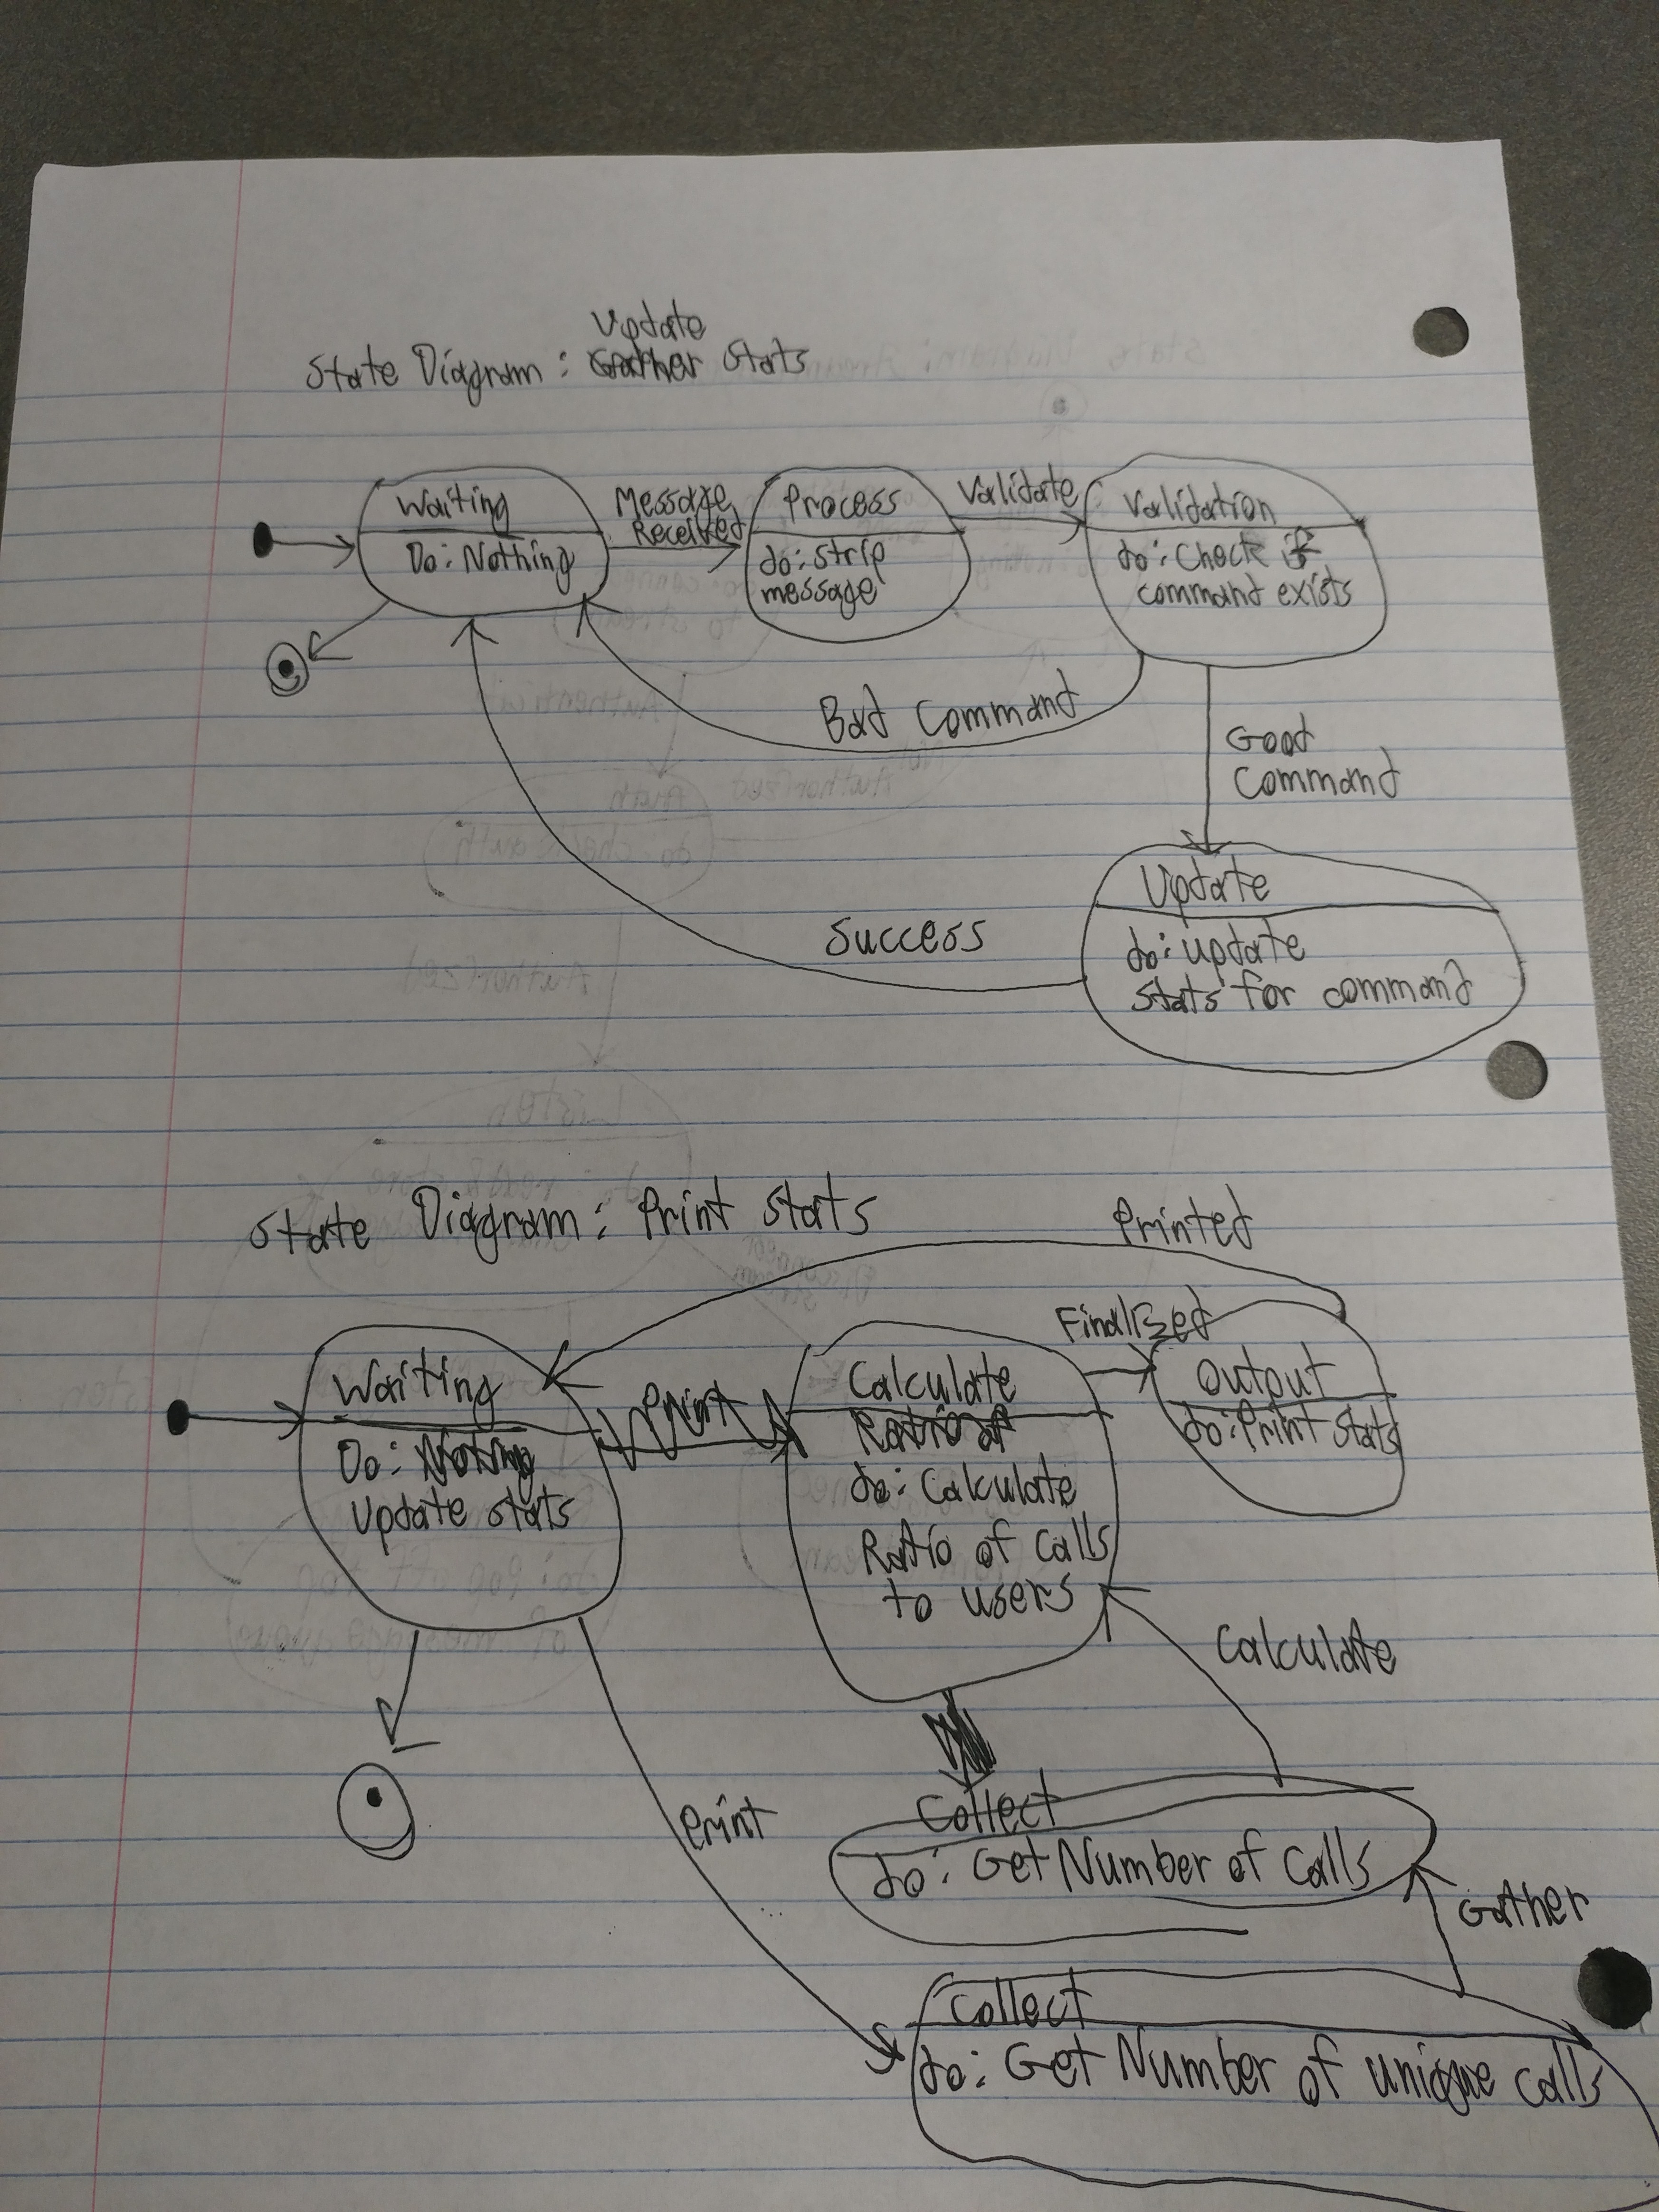 Update
State Diagram: Gather Stats
Waiting
Do: Nothing
Message
Received
Process
do: strip
message
Validate
Validation
do: Check if
command exists
Bad Command
Good
Command
Update
do: update
stats for command
Success
State Diagram: Print Stats
Printed
Waiting
Do: Nothing
Update stats
Print
Calculate
do: Calculate
Ratio of calls
to users
Finalized
Output
do: Print stats
Calculate
Print
Collect
do: Get Number of calls
Gather
Collect
do: Get Number of unique calls